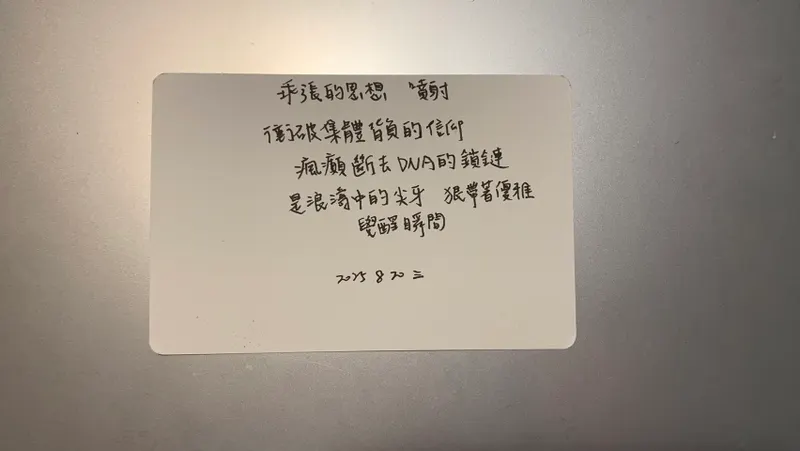 乖張的思想 噴射
衝破集體背負的信仰
瘋癲斷去DNA的鎖鏈
是浪濤中的尖牙 狠帶著優雅
覺醒瞬間
2025 8 20 三